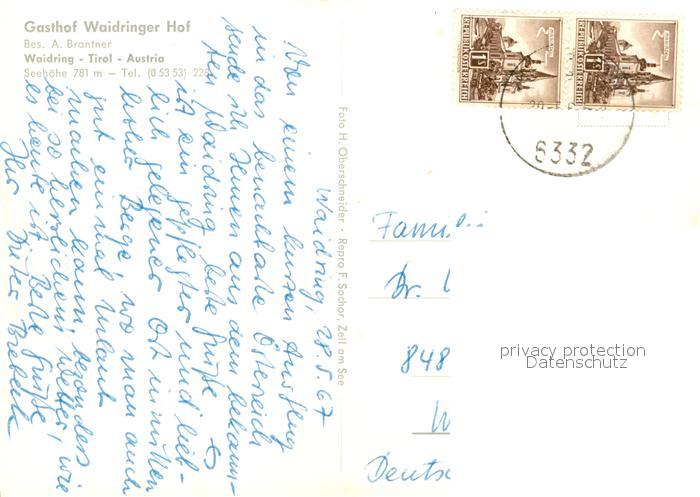 Gasthof Waidringer Hof
Bes. A. Brantner
Waidring - Tirol - Austria
Seehöhe 781 m — Tel. (0 53 53) 225
Waidring, 28.5.67
Von einem kurzen Ausflug
in das benachbarte Österreich
sende ich Ihnen aus dem bekann-
ten Waidring beste Grüße. Es
ist ein gepflegter und lieb-
lich gelegener Ort inmitten
hoher Berge, wo man auch
gut einmal Urlaub
machen kann, besonders
bei so herrlichem Wetter, wie
es heute ist. Beste Grüße
Ihr Dieter
Foto H. Oberschneider · Repro F. Sochor, Zell am See
REPUBLIK ÖSTERREICH
1S
REPUBLIK ÖSTERREICH
1S
6332
Famili
Dr.
848
W
Deutsc
privacy protection
Datenschutz